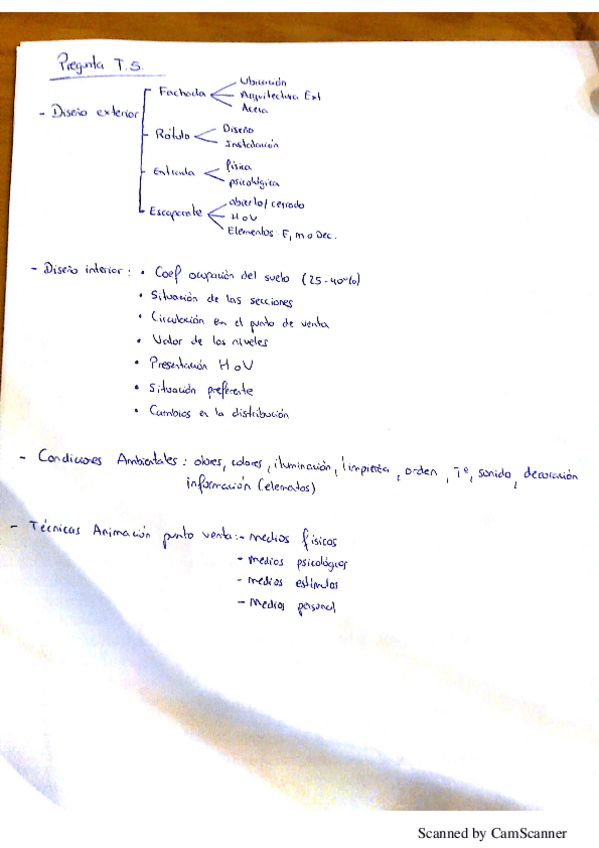 Pregunta T.5.
- Diseño exterior
Fachada
Ubicación
Arquitectura Ext
Acera
Rótulo
Diseño
Instalación
Entrada
física
psicológica
Escaparate
abierto/cerrado
H o V
Elementos: F, m o Dec.
- Diseño interior: • Coef ocupación del suelo (25-40%)
• Situación de las secciones
• Circulación en el punto de venta
• Valor de los niveles
• Presentación H o V
• Situación preferente
• Cambios en la distribución
- Condiciones Ambientales: olores, colores, iluminación, limpieza, orden, Tº, sonido, decoración,
información (elementos)
- Técnicas Animación punto venta: - medios físicos
- medios psicológicos
- medios estímulos
- Medios personal
Scanned by CamScanner